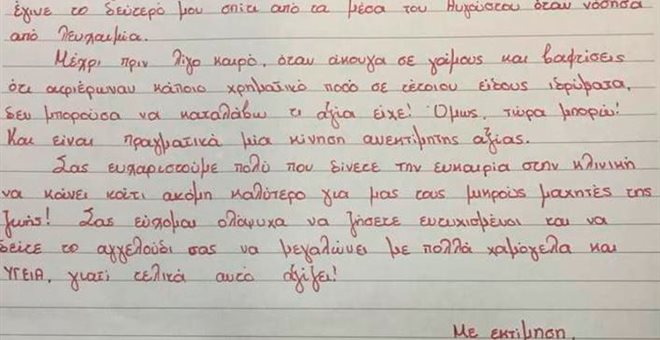 έγινε το δεύτερό μου σπίτι από τα μέσα του Αυγούστου όταν νόσησα
από λευχαιμία.
Μέχρι πριν λίγο καιρό, όταν άκουγα σε γάμους και βαφτίσεις
ότι αφιέρωναν κάποιο χρηματικό ποσό σε τέτοιου είδους ιδρύματα,
δεν μπορούσα να καταλάβω τι αξία είχε! Όμως, τώρα μπορώ!
Και είναι πραγματικά μία κίνηση ανεκτίμητης αξίας.
Σας ευχαριστούμε πολύ που δίνετε την ευκαιρία στην κλινική
να κάνει κάτι ακόμη καλύτερο για μας τους μικρούς μαχητές της
ζωής! Σας εύχομαι ολόψυχα να ζήσετε ευτυχισμένοι και να
δείτε το αγγελούδι σας να μεγαλώνει με πολλά χαμόγελα και
ΥΓΕΙΑ, γιατί τελικά αυτό αξίζει!
Με εκτίμηση,